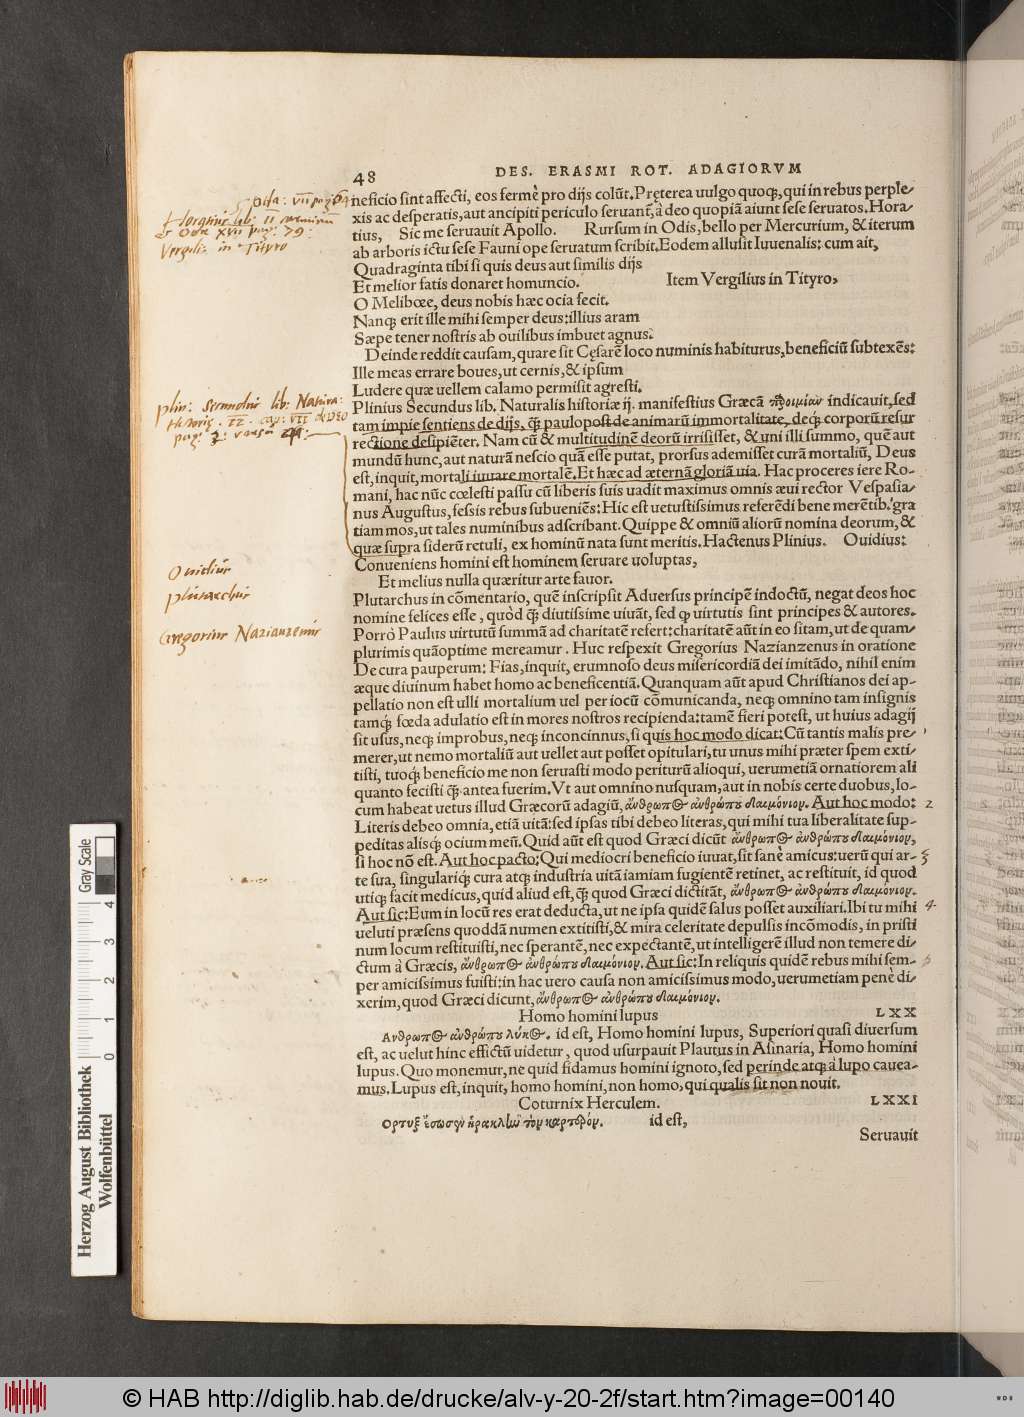 48 DES. ERASMI ROT. ADAGIORVM
neficio sint affecti, eos fermè pro dijs colūt. Pręterea uulgo quoq́;, qui in rebus perple/
xis ac desperatis, aut ancipiti periculo seruant̃, à deo quopiã aiunt sese seruatos. Hora/
tius, Sic me seruauit Apollo. Rursum in Odis, bello per Mercurium, & iterum
ab arboris ictu sese Fauni ope seruatum scribit. Eodem allusit Iuuenalis: cum ait,
Quadraginta tibi si quis deus aut similis dijs
Et melior fatis donaret homuncio. Item Vergilius in Tityro,
O Meliboee, deus nobis hæc ocia fecit.
Nanq; erit ille mihi semper deus: illius aram
Sæpe tener nostris ab ouilibus imbuet agnus.
Deinde reddit causam, quare sit Cęsarē loco numinis habiturus, beneficiū subtexēs:
Ille meas errare boues, ut cernis, & ipsum
Ludere quæ uellem calamo permisit agresti.
Plinius Secundus lib. Naturalis historiæ ij. manifestius Græcã παροιμίαν indicauit, sed
tam impie sentiens de dijs, q̃; paulo post de animarū immortalitate, deq́; corporū resur
rectione desipiēter. Nam cū & multitudinē deorū irrisisset, & uni illi summo, quē aut
mundū hunc, aut naturã nescio quã esse putat, prorsus ademisset curã mortaliū, Deus
est, inquit, mortali iuuare mortalē. Et hæc ad æternã gloriã uia. Hac proceres iere Ro-
mani, hac nūc cœlesti passu cū liberis suis uadit maximus omnis æui rector Vespasia-
nus Augustus, fessis rebus subueniēs: Hic est uetustissimus referēdi bene merētib. gra
tiam mos, ut tales numinibus adscribant. Quippe & omniū aliorū nomina deorum, &
quæ supra siderū retuli, ex hominū nata sunt meritis. Hactenus Plinius. Ouidius:
Conueniens homini est hominem seruare uoluptas,
Et melius nulla quæritur arte fauor.
Plutarchus in cōmentario, quē inscripsit Aduersus principē indoctū, negat deos hoc
nomine felices esse, quòd q̃; diutissime uiuãt, sed ꝙ uirtutis sint principes & autores.
Porrò Paulus uirtutū summã ad charitatē refert: charitatē aūt in eo sitam, ut de quam/
plurimis quãoptime mereamur. Huc respexit Gregorius Nazianzenus in oratione
De cura pauperum: Fias, inquit, erumnoso deus misericordiã dei imitãdo, nihil enim
æque diuinum habet homo ac beneficentiã. Quanquam aūt apud Christianos dei ap-
pellatio non est ulli mortalium uel per iocū cōmunicanda, neq; omnino tam insignis
tamq́; fœda adulatio est in mores nostros recipienda: tamē fieri potest, ut huius adagij
sit usus, neq; improbus, neq; inconcinnus, si quis hoc modo dicat: Cū tantis malis pre/
merer, ut nemo mortaliū aut uellet aut posset opitulari, tu unus mihi præter spem exti/
tisti, tuoq́; beneficio me non seruasti modo periturū alioqui, uerumetiã ornatiorem ali
quanto fecisti q̃; antea fuerim. Vt aut omnino nusquam, aut in nobis certe duobus, lo-
cum habeat uetus illud Græcorū adagiū, ἄνθρωπος ἀνθρώπου δαιμόνιον. Aut hoc modo: 2
Literis debeo omnia, etiã uitã: sed ipsas tibi debeo literas, qui mihi tua liberalitate sup-
peditas alisq́; ocium meū. Quid aūt est quod Græci dicūt ἄνθρωπος ἀνθρώπου δαιμόνιον,
si hoc nō est. Aut hoc pacto: Qui mediocri beneficio iuuat, sit sanè amicus: uerū qui ar- 3
te sua, singulariq́; cura atq; industria uitã iamiam fugientē retinet, ac restituit, id quod
utiq; facit medicus, quid aliud est, q̃; quod Græci dictitãt, ἄνθρωπος ἀνθρώπου δαιμόνιον.
Aut sic: Eum in locū res erat deducta, ut ne ipsa quidē salus posset auxiliari. Ibi tu mihi 4
ueluti præsens quoddã numen extitisti, & mira celeritate depulsis incōmodis, in pristi
num locum restituisti, nec sperantē, nec expectantē, ut intelligerē illud non temere di/
ctum à Græcis, ἄνθρωπος ἀνθρώπου δαιμόνιον. Aut sic: In reliquis quidē rebus mihi sem-
per amicissimus fuisti: in hac uero causa non amicissimus modo, uerumetiam penè di-
xerim, quod Græci dicunt, ἄνθρωπος ἀνθρώπου δαιμόνιον.
Homo homini lupus LXX
Ανθρωπος ἀνθρώπου λύκος. id est, Homo homini lupus, Superiori quasi diuersum
est, ac uelut hinc effictū uidetur, quod usurpauit Plautus in Asinaria, Homo homini
lupus. Quo monemur, ne quid fidamus homini ignoto, sed perinde atq; à lupo cauea-
mus. Lupus est, inquit, homo homini, non homo, qui qualis sit non nouit.
Coturnix Herculem. LXXI
Ορτυξ ἔσωσεν ἡρακλῆν τὸν καρτερόν. id est,
Seruauit
Horatius lib: II carminum
& Oda XVII pag: 79:
Vergili: in Tityro
Plin: Secundus lib: Natura:
Historiæ. II. cap: VII de DEO
Ouidius
Plutarchus
Gregorius Nazianzenus
Gray Scale
0 1 2 3 4
Herzog August Bibliothek
Wolfenbüttel
© HAB http://diglib.hab.de/drucke/alv-y-20-2f/start.htm?image=00140